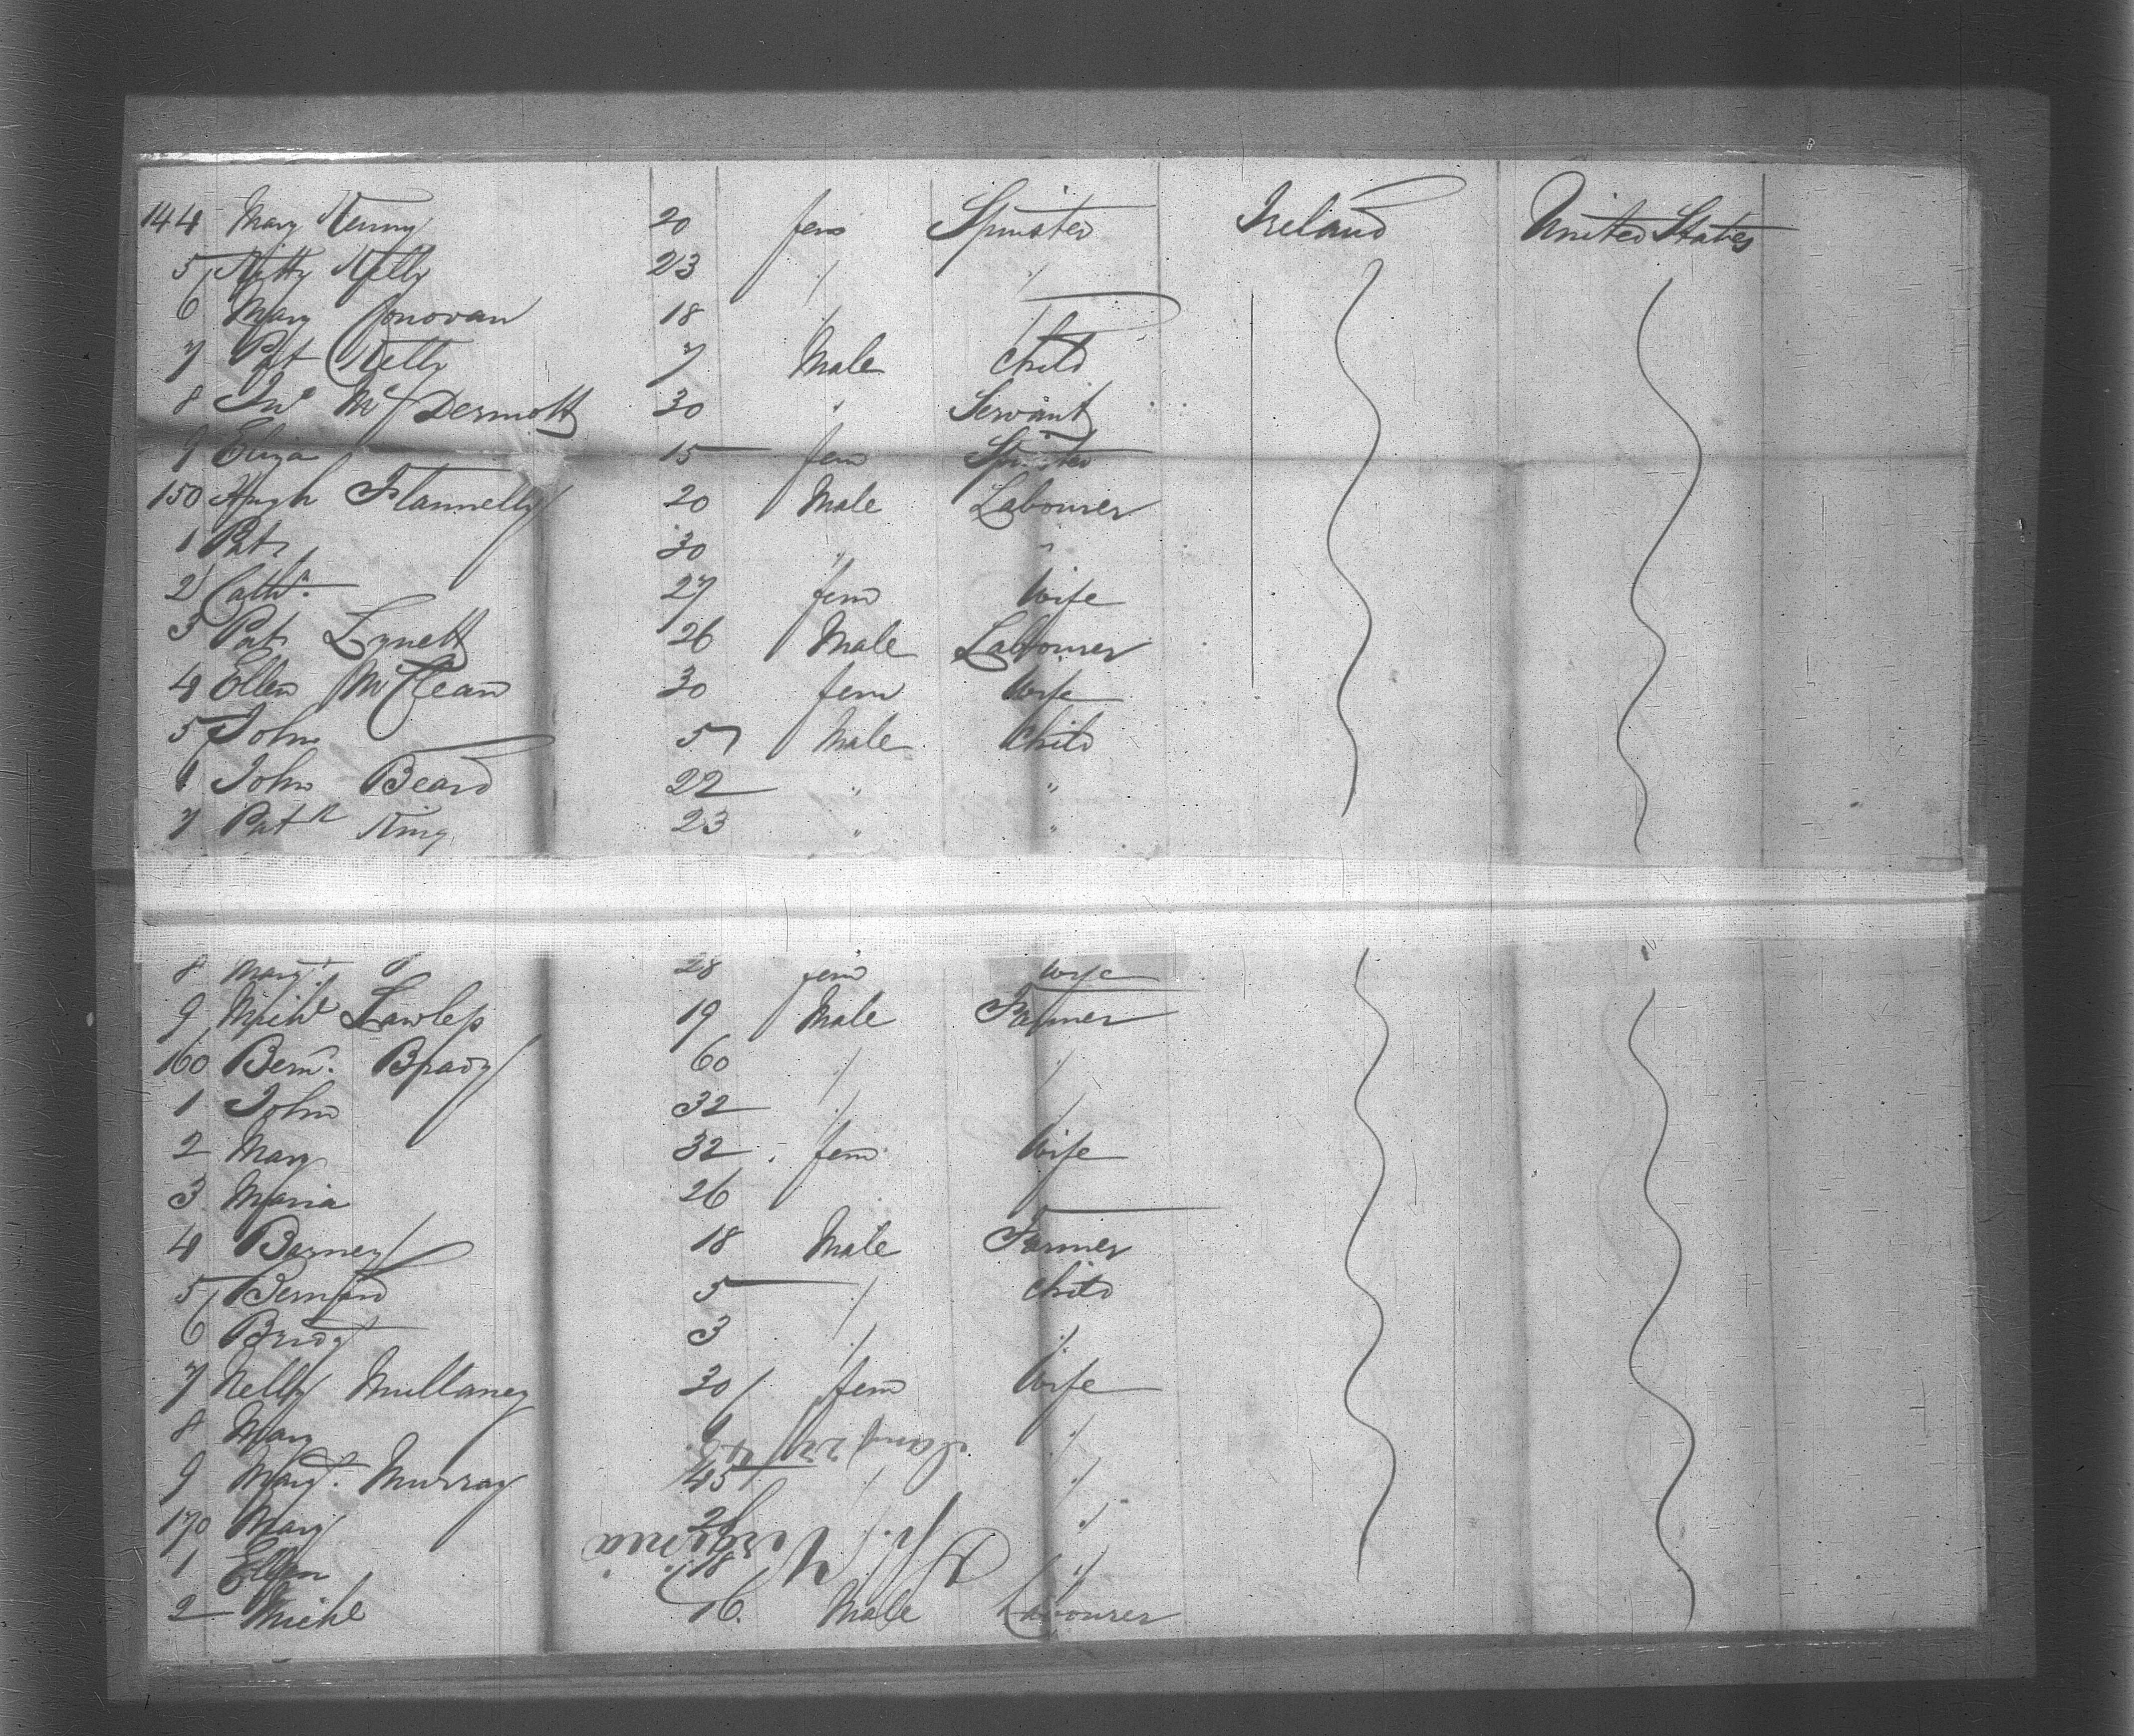 144 Mary Kenny 20 fem Spinster Ireland United States
5 Kitty Kelly 23 " "
6 Mary Donovan 18 "
7 Pat Kelly 7 Male Child
8 Jno McDermott 30 " Servant
9 Eliza 15 fem Spinster
150 Hugh Flannelly 20 Male Labourer
1 Pat 30 " "
2 Cathn 27 fem Wife
3 Pat Lynett 26 Male Labourer
4 Ellen McClean 30 fem Wife
5 John 5 Male Child
6 John Beard 22 " "
7 Patk King 23 " "
8 Margt 28 fem Wife
9 Michl Lawless 19 Male Farmer
160 Bern. Brady 60 " "
1 John 32 "
2 Mary 32 fem Wife
3 Maria 26
4 Barney 18 Male Farmer
5 Bernard 5 " Child
6 Bridgt 3 " "
7 Nelly Mullaney 30 fem Wife
8 Mary "
9 Margt. Murray 45 " "
170 Mary "
1 Ellen 18 "
2 Michl 16. Male Labourer
Sp. Virginia